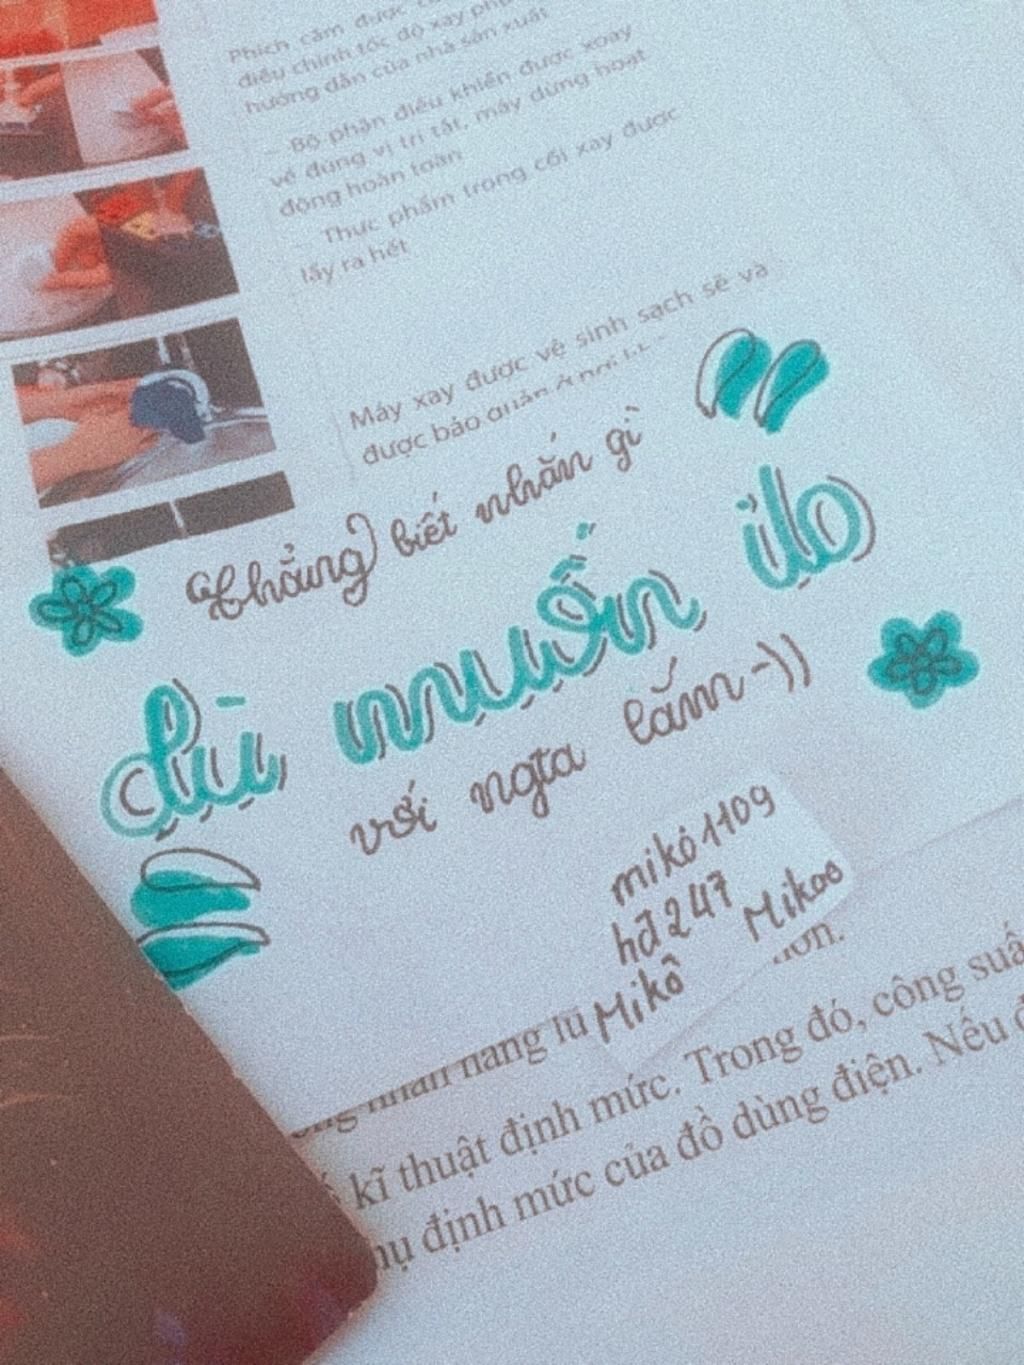 Phích cắm được
điều chỉnh tốc độ xay
hướng dẫn của nhà sản xuất
– Bộ phận điều khiển được xoay
về đúng vị trí tắt, máy dừng hoạt
động hoàn toàn
– Thực phẩm trong cối xay được
lấy ra hết
Máy xay được vệ sinh sạch sẽ và
được bảo quản ở nơi
Chẳng biết nhắn gì
dù muốn ib
với ngta lắm -))
mikô1109
hđ247
Mikoo
Mikô
năng lư
kĩ thuật định mức. Trong đó, công suấ
định mức của đồ dùng điện. Nếu đ